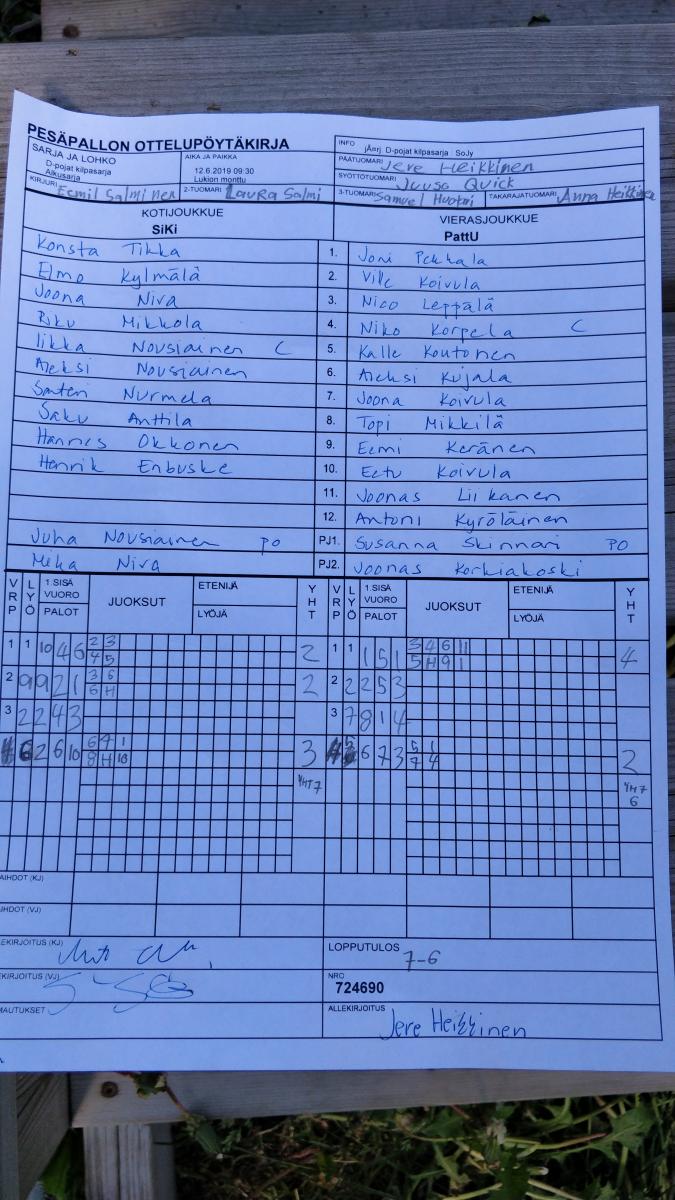 PESÄPALLON OTTELUPÖYTÄKIRJA
SARJA JA LOHKO
D-pojat kilpasarja
Alkusarja
AIKA JA PAIKKA
12.6.2019 09:30
Lukion monttu
INFO
jÄnrj. D-pojat kilpasarja | SoJy
PÄÄTUOMARI Jere Heikkinen
SYÖTTÖTUOMARI Juuso Quick
KIRJURI Eemil Salminen 2-TUOMARI Laura Salmi 3-TUOMARI Samuel Huotari TAKARAJATUOMARI Anna Heikkinen
KOTIJOUKKUE VIERASJOUKKUE
SiKi PattU
Konsta Tikka 1. Joni Pekkala
Elmo Kylmälä 2. Ville Koivula
Joona Niva 3. Nico Leppälä
Riku Mikkola 4. Niko Korpela C
Iikka Nousiainen C 5. Kalle Koutonen
Aleksi Nousiainen 6. Aleksi Kujala
Santeri Nurmela 7. Joona Koivula
Saku Anttila 8. Topi Mikkilä
Hannes Okkonen 9. Eemi Keränen
Henrik Enbuske 10. Eetu Koivula
11. Joonas Liikanen
12. Antoni Kyröläinen
Juha Nousiainen PO PJ1. Susanna Skinnari PO
Mika Niva PJ2. Joonas Korkiakoski
VRP LYÖ 1.SISÄ VUORO PALOT JUOKSUT ETENIJÄ LYÖJÄ YHT VRP LYÖ 1.SISÄ VUORO PALOT JUOKSUT ETENIJÄ LYÖJÄ YHT
1 1 10 4 6 2 3 2 1 1 1 5 1 3 4 6 11 4
4 5 5 H 9 1
2 9 9 2 1 3 6 2 2 2 2 5 3
6 H
3 2 2 4 3 3 7 8 1 4
6 2 6 10 6 7 1 3 6 7 3 5 1 2
8 H 10 7 4
YHT 7 YHT 6
AIHDOT (KJ)
AIHDOT (VJ)
EKIRJOITUS (KJ)
LOPPUTULOS 7-6
KIRJOITUS (VJ)
NRO
724690
MAUTUKSET
ALLEKIRJOITUS Jere Heikkinen